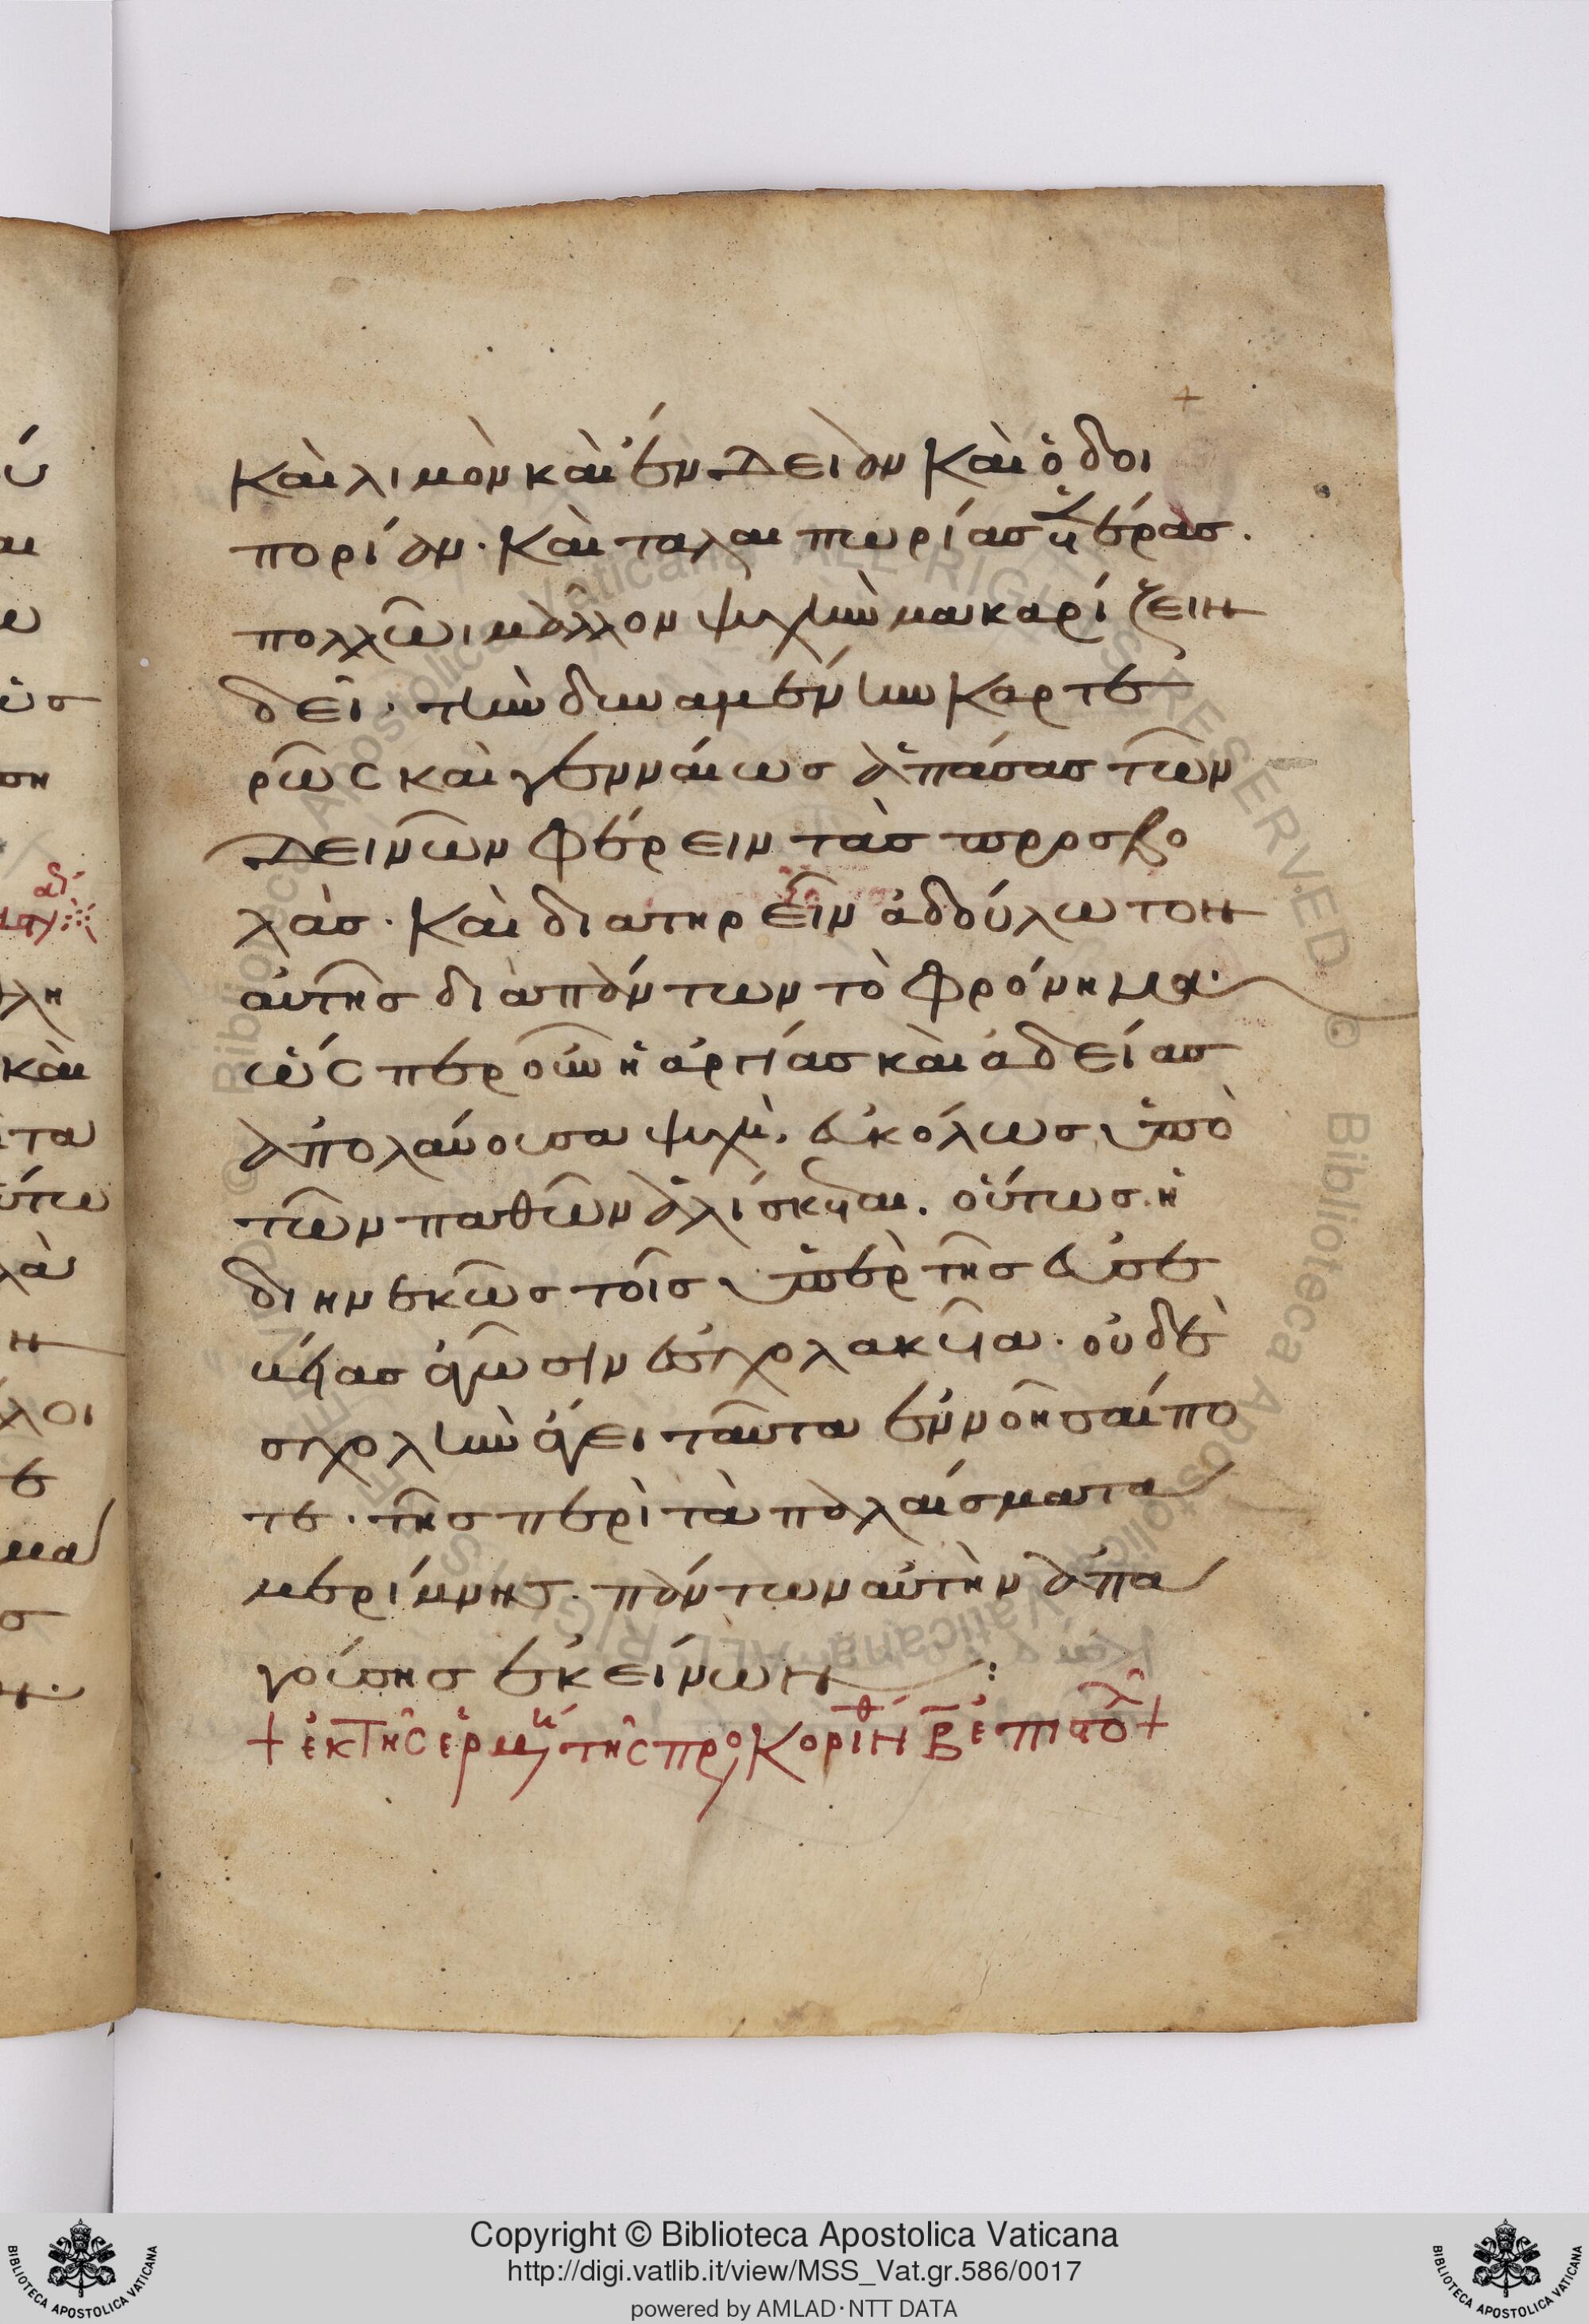 καὶ λιμὸν καὶ ἔνδειαν καὶ ὁδοι
πορίαν· καὶ ταλαιπωρίας ἑτέρας.
πολλῶι μᾶλλον ψυχὴν μακαρίζειν
δεῖ· τὴν δυναμένην καρτε
ρῶς καὶ γενναίως ἁπάσας τῶν
δεινῶν φέρειν τὰς προσβο
λάς· καὶ διατηρεῖν ἀδούλωτον
αὐτῆς διαπάντων τὸ φρόνημα·
ὥσπερ οὖν ἡ ἀργίας καὶ ἀδείας
ἀπολαύουσα ψυχὴ, εὐκόλως ὑπὸ
τῶν παθῶν ἁλίσκεται. οὕτως ἡ
διηνεκῶς τοῖς ὑπὲρ τῆς εὐσε
βείας ἀγῶσιν ἐσχολακυῖα· οὐδὲ
σχολὴν ἄγει ταῦτα ἐννοῆσαί πο
τε· τῆς περὶ τὰ παλαίσματα
μερίμνης· πάντων αὐτὴν ἀπα
γούσης ἐκείνων :
+ ἐκ τῆς ἑρμη τῆς προ κοριν β ἐπιστολ +
ύ
αι
ω
ὺσ
ση
λη
καὶ
τα
ύτω
λὰ
η
λοι
ε
μα
σ
Copyright © Biblioteca Apostolica Vaticana
http://digi.vatlib.it/view/MSS_Vat.gr.586/0017
powered by AMLAD·NTT DATA
BIBLIOTECA APOSTOLICA VATICANA
BIBLIOTECA APOSTOLICA VATICANA